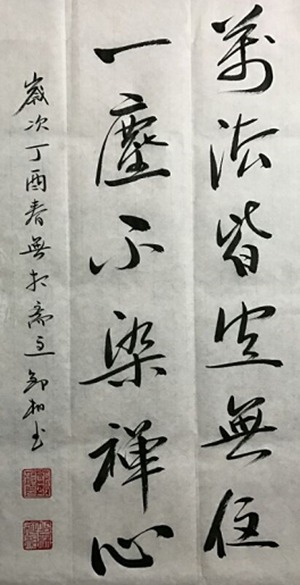 萬法皆空無住
一塵不染禪心
歲次丁酉春無相齋主鄒相书